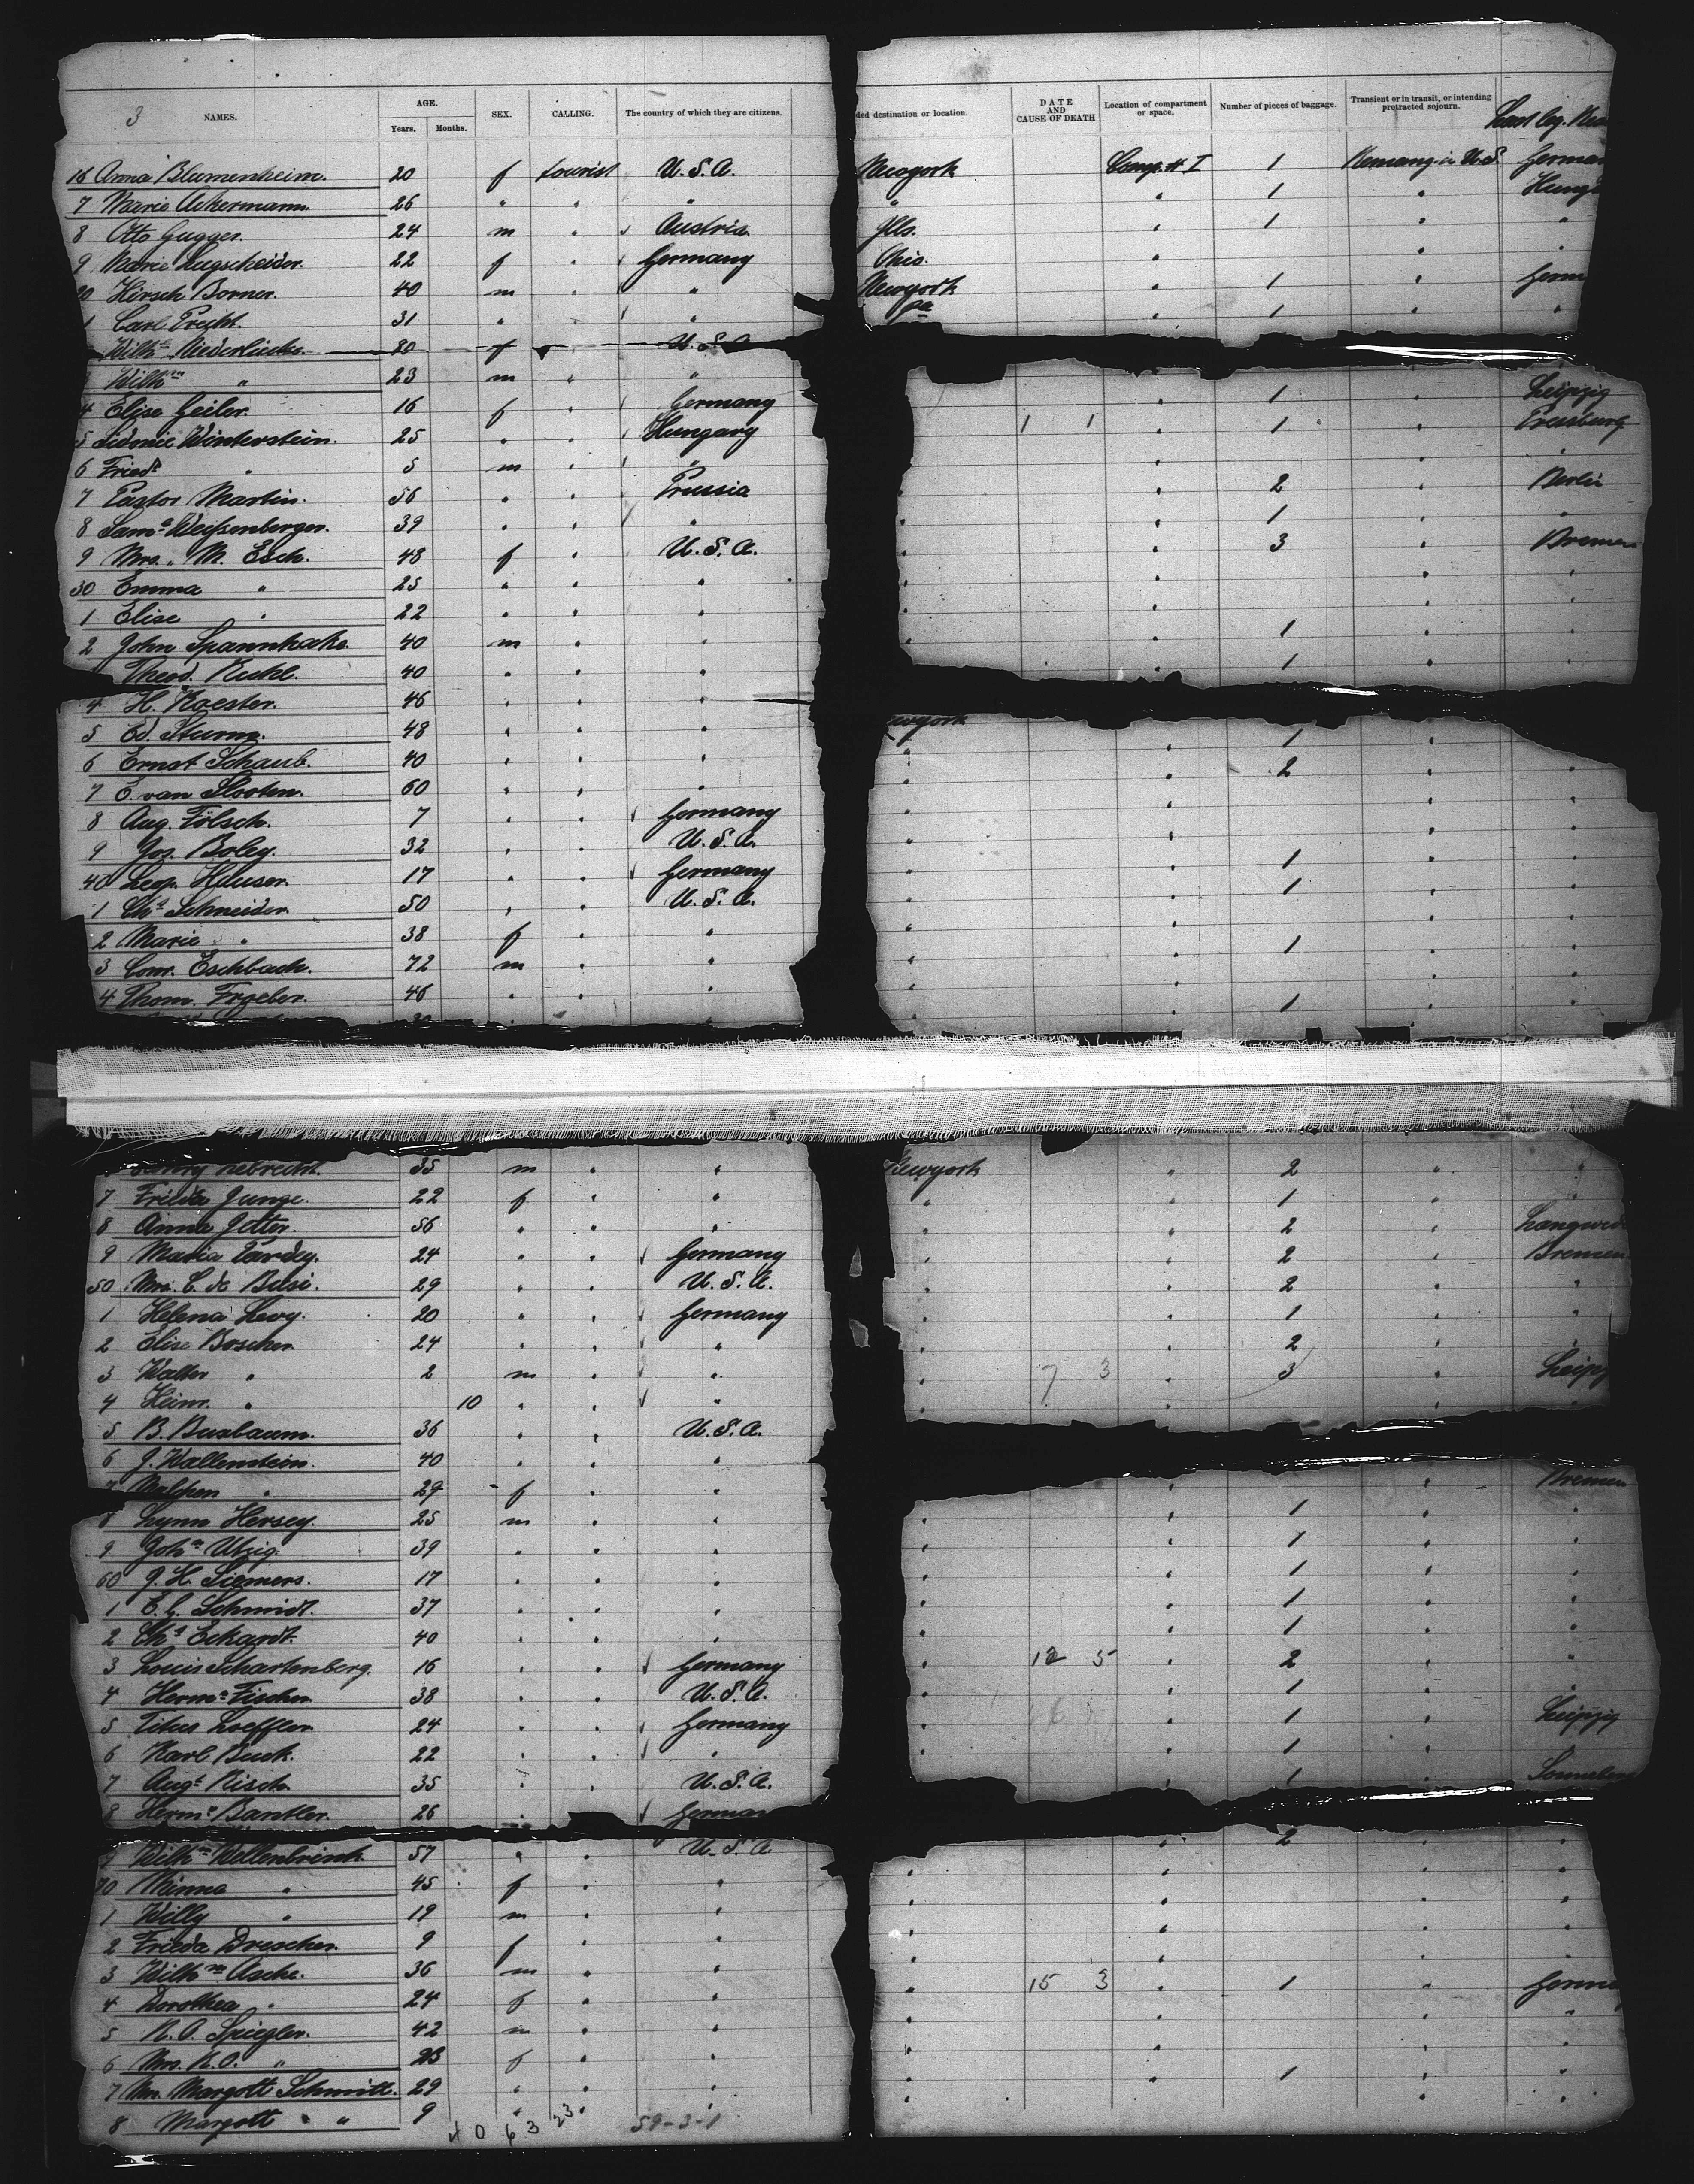 3 NAMES. AGE. Years. Months. SEX. CALLING. The country of which they are citizens. ded destination or location. DATE AND CAUSE OF DEATH Location of compartment or space. Number of pieces of baggage. Transient or in transit, or intending protracted sojourn.
16 Anna Blumenheim. 20 f tourist U.S.A. Newyork Comp. # I 1 U.S. German
7 Marie Ackermann. 26 " " " " " 1 " Hung
8 Otto Gugger. 24 m " Austria Ills. " 1 " "
9 Marie Lugscheider. 22 f " Germany Ohio. " " "
20 Hirsch Borner. 40 m " " Newyork " 1 " Germ
1 Carl 31 " " " Pa " 1 " "
Wilh 20 f " U.S.A
Wilhm " 23 m " " " 1 " Leipzig
4 Elise Geiler. 16 f " Germany 1 1 " 1 " Pressburg
5 Sidonie Winterstein. 25 " " Hungary " " "
6 Friedr " 5 m " " " " 2 " Berlin
7 Pastor Martin. 56 " " Prussia " " 1 " "
8 Saml Weissenberger. 39 " " " " " 3 " Bremen
9 Mrs. M. Esch. 48 f " U.S.A. " " " "
30 Emma " 25 " " " " " " "
1 Elise " 22 " " " " " 1 " "
2 John Spannhake. 40 m " " " " 1 " "
Theod. Ruhl. 40 " " "
4 H. Koester. 46 " " " ewyork
5 Ed. Sturm. 48 " " " " " 1 "
6 Ernst Schaub. 40 " " " " " 2 " "
7 E. van Slooten. 60 " " " " " " "
8 Aug. Fölsch. 7 " " Germany " " " "
9 Jos. Boley. 32 " " U.S.A. " " 1 " "
40 Leop. Hauser. 17 " " Germany " " 1 " "
1 Chs Schneider. 50 " " U.S.A. " " " "
2 Marie " 38 f " " " " 1 " "
3 Conr. Eschbach. 72 m " " " " " "
4 Thom. Froeber. 46 " " " " " 1 " "
35 m " " Newyork " 2 " "
7 Frieda Junge. 22 f " " " " 1 "
8 Anna 56 " " " " " 2 "
9 Maria Pardey. 24 " " Germany " " 2 " Bremen
50 Mrs. C. de Busi. 29 " " U.S.A. " " 2 " "
1 Helena Levy. 20 " " Germany " " 1 " "
2 Elise Boscher. 24 " " " " " 2 " "
3 Walter " 2 m " " " 7 3 " 3 " Leipz
4 Heinr. " 10 " " " " " " "
5 B. Buxbaum. 36 " " U.S.A.
6 J. Wallenstein. 40 " " "
7 Malchen " 29 f " " " " Bremen
8 Lynn Hersey. 25 m " " " " 1 " "
9 Johs Utzig. 39 " " " " " 1 " "
60 J. H. Siemers. 17 " " " " " 1 " "
1 E. G. Schmidt. 37 " " " " " 1 " "
2 Chs Eckardt. 40 " " " " " 1 " "
3 Louis Schartenberg. 16 " " Germany " 12 5 " 2 " "
4 Herm. Fischer. 38 " " U.S.A. " " 1 " "
5 Titus Loeffler. 24 " " Germany " " 1 " Leipzig
6 Karl Buck. 22 " " " " " 1 " "
7 Augt Risch. 35 " " U.S.A. " 1 "
8 Herm. Bantler. 26 " German
Wilhm Wellenbrink 57 " " U.S.A " 2 " "
70 Minna " 45 f " " " " " "
1 Willy " 19 m " " " " " "
2 Frieda Drescher. 9 f " " " " " "
3 Wilhm Asche. 36 m " " " " " "
4 Dorothea " 24 f " " " 15 3 " 1 " Germ
5 N. O. Spiegler. 42 m " " " " " "
6 Mrs. N. O. " 23 f " " " " " "
7 Mrs. Margott Schmitt. 29 " " " " " 1 " "
8 Margott " 9 " " " " " "
4 0 6 3 23 59-3-1